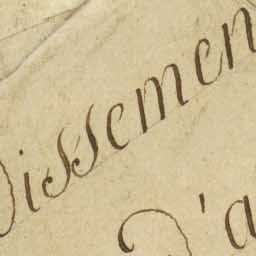 issemen
D'a